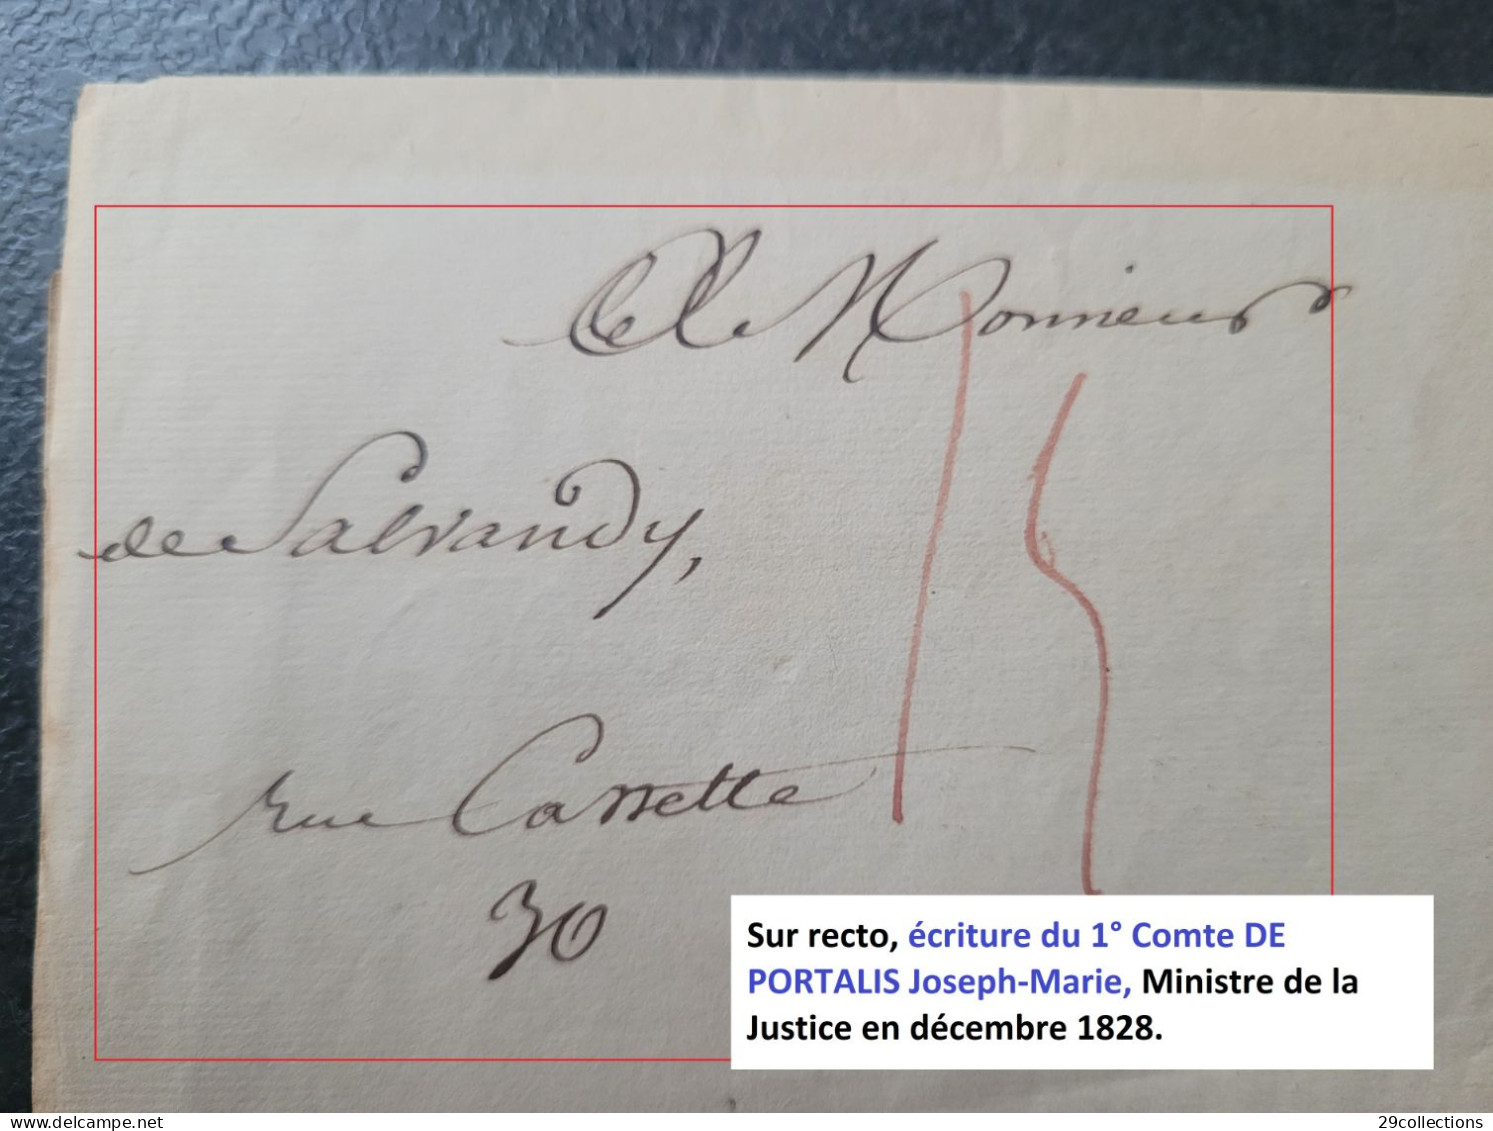 A Monsieur
de Salvandy,
rue Cassette
30
15
Sur recto, écriture du 1° Comte DE
PORTALIS Joseph-Marie, Ministre de la
Justice en décembre 1828.
delcampe.net
29collections